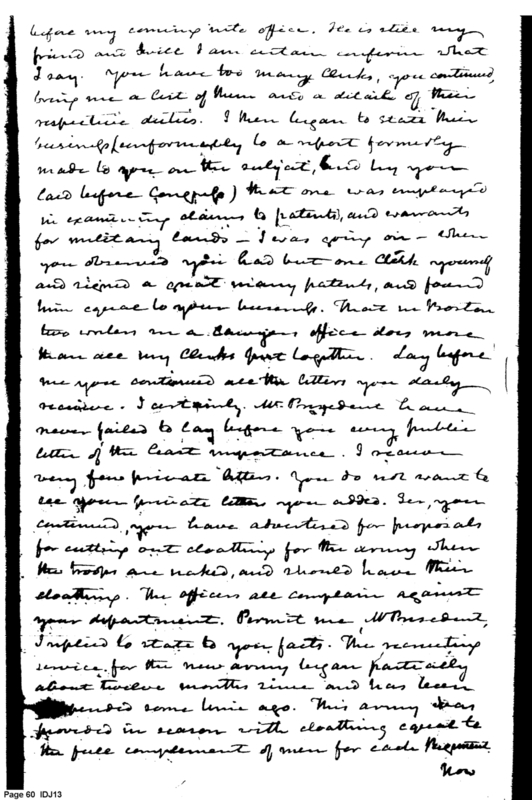 before my coming into office. He is still my
friend and will I am certain confirm what
I say. You have too many Clerks, you continued,
bring me a list of them and a detail of their
respective duties. I then began to state their
business (conformably to a report formerly
made to you on the subject, and by you
laid before Congress) that one was employed
in examining claims to patents, and warrants
for military lands — I was going on — when
you observed you had but one Clerk yourself
and signed a great many patents, and found
him equal to your business. That in Boston
two workers in a Lawyers office does more
than all my Clerks put together. Lay before
me you continued all the letters you daily
receive. I certainly, Mr President have
never failed to lay before you every public
letter of the least importance. I receive
very few private letters. You do not want to
see your private letters you added. Sir, you
continued, you have advertised for proposals
for cutting out cloathing for the army when
the troops are naked, and should have their
cloathing. The officers all complain against
your department. Permit me, Mr President,
I replied to state to you facts. The recruiting
service for the new army began partially
about twelve months since and has been
some time ago. This army was
provided in season with cloathing equal to
the full complement of men for each Regiment
Now
Page 60 IDJ13